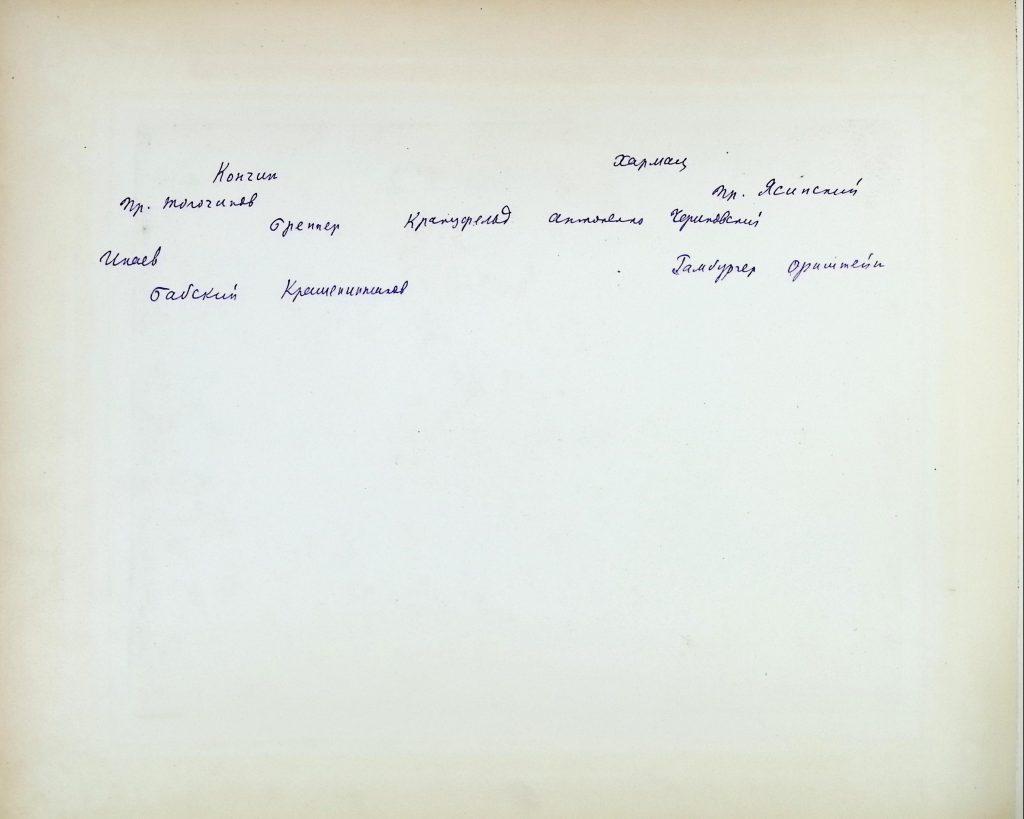 Кончин Хармац
пр. Тогочинов пр. Ясинский
Бреннер Кранцфельд Антоненко Черниковский
Инаев Гамбургер Ориштейн
Бабский Крашенинников